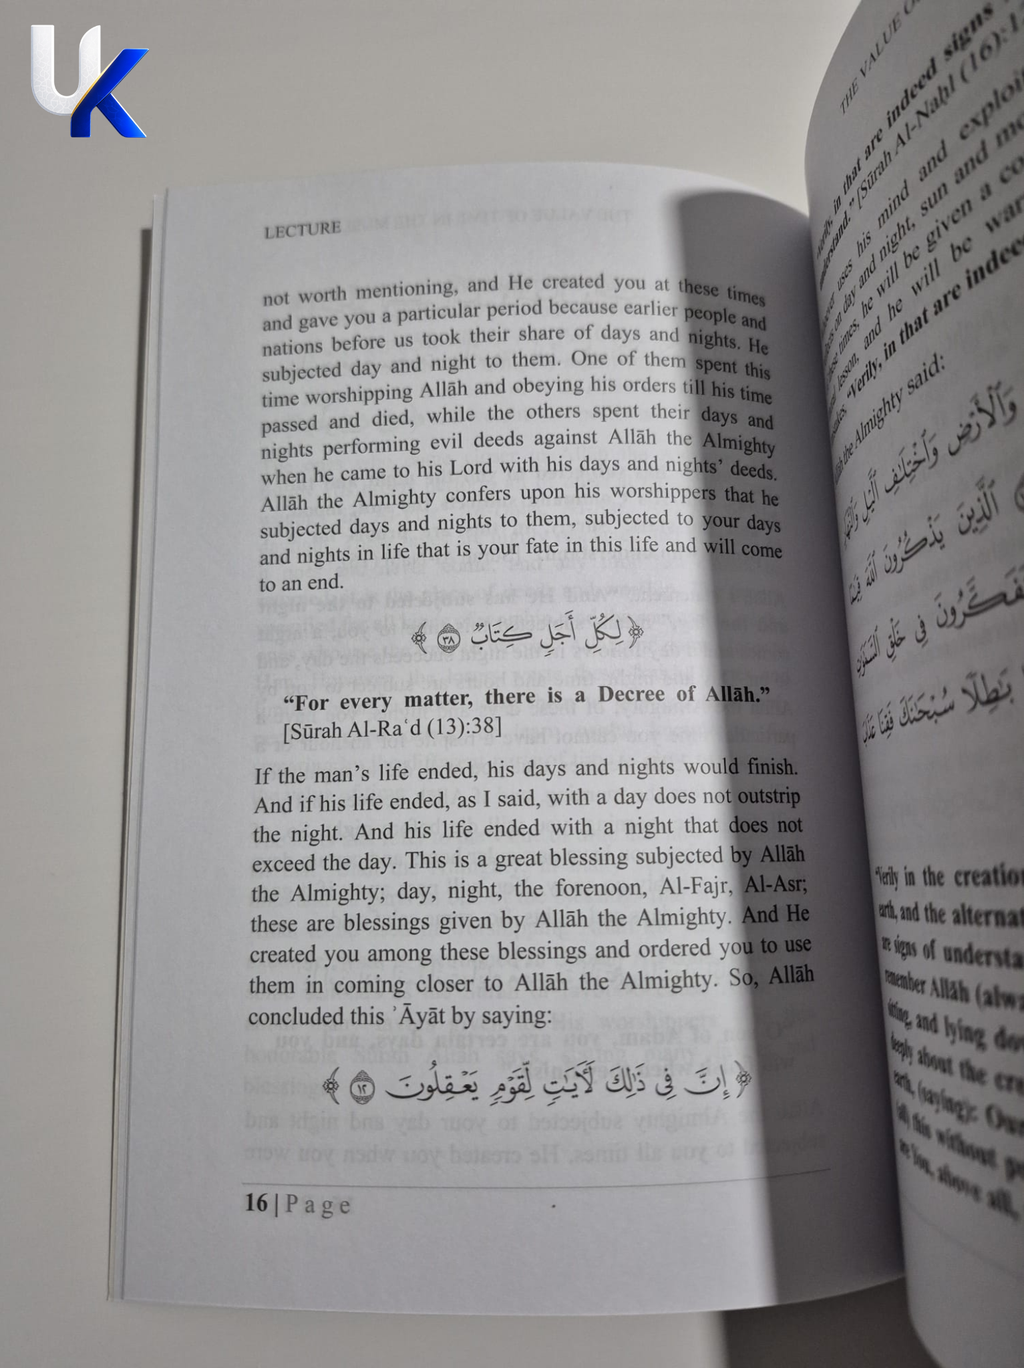 UK
LECTURE
not worth mentioning, and He created you at these times
and gave you a particular period because earlier people and
nations before us took their share of days and nights. He
subjected day and night to them. One of them spent this
time worshipping Allāh and obeying his orders till his time
passed and died, while the others spent their days and
nights performing evil deeds against Allāh the Almighty
when he came to his Lord with his days and nights’ deeds.
Allāh the Almighty confers upon his worshippers that he
subjected days and nights to them, subjected to your days
and nights in life that is your fate in this life and will come
to an end.
﴿لِكُلِّ أَجَلٍ كِتَابٌ ٣٨﴾
“For every matter, there is a Decree of Allāh.”
[Sūrah Al-Raʿd (13):38]
If the man’s life ended, his days and nights would finish.
And if his life ended, as I said, with a day does not outstrip
the night. And his life ended with a night that does not
exceed the day. This is a great blessing subjected by Allāh
the Almighty; day, night, the forenoon, Al-Fajr, Al-Asr;
these are blessings given by Allāh the Almighty. And He
created you among these blessings and ordered you to use
them in coming closer to Allāh the Almighty. So, Allāh
concluded this ʾĀyāt by saying:
﴿إِنَّ فِي ذَٰلِكَ لَآيَاتٍ لِّقَوْمٍ يَعْقِلُونَ ١٢﴾
16 | Page
THE VALUE
in that are indeed signs
understand.” [Sūrah Al-Naḥl (16):1
uses his mind and exploi
on day and night, sun and mo
times, he will be given a co
lesson, and he will be war
“Verily, in that are indee
the Almighty said:
وَٱلْأَرْضِ وَٱخْتِلَٰفِ ٱلَّيْلِ وَٱلنَّهَا
ٱلَّذِينَ يَذْكُرُونَ ٱللَّهَ قِيَٰمًا
وَيَتَفَكَّرُونَ فِي خَلْقِ ٱلسَّمَٰوَٰتِ
بَٰطِلًا سُبْحَٰنَكَ فَقِنَا عَذَابَ
“Verily in the creatio
earth, and the alternat
are signs of understa
remember Allāh (alwa
sitting, and lying do
deeply about the cre
earth, (saying): Ou
(all) this without p
You, above all,